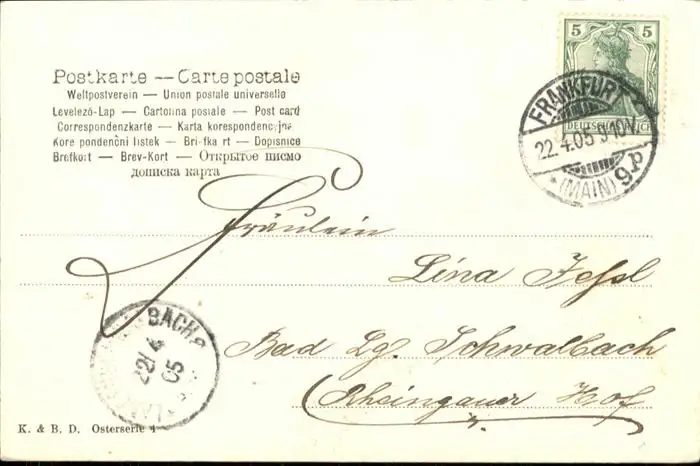 Postkarte — Carte postale
Weltpostverein — Union postale universelle
Levelező-Lap — Cartolina postale — Post card
Correspondenzkarte — Karta korespondencyjna
Kore pondenční lístek — Bri-fka rt — Dopisnice
Brefkort — Brev-Kort — Открытое писмо
дописка карта
5 5
DEUTSCHES REICH
FRANKFURT
22.4.05 9-10V.
*(MAIN) 9p
Fräulein
Lina
Bad Lg. Schwalbach
Rheingauer Hof
BACH
22/4
05
K. & B. D. Osterserie 4